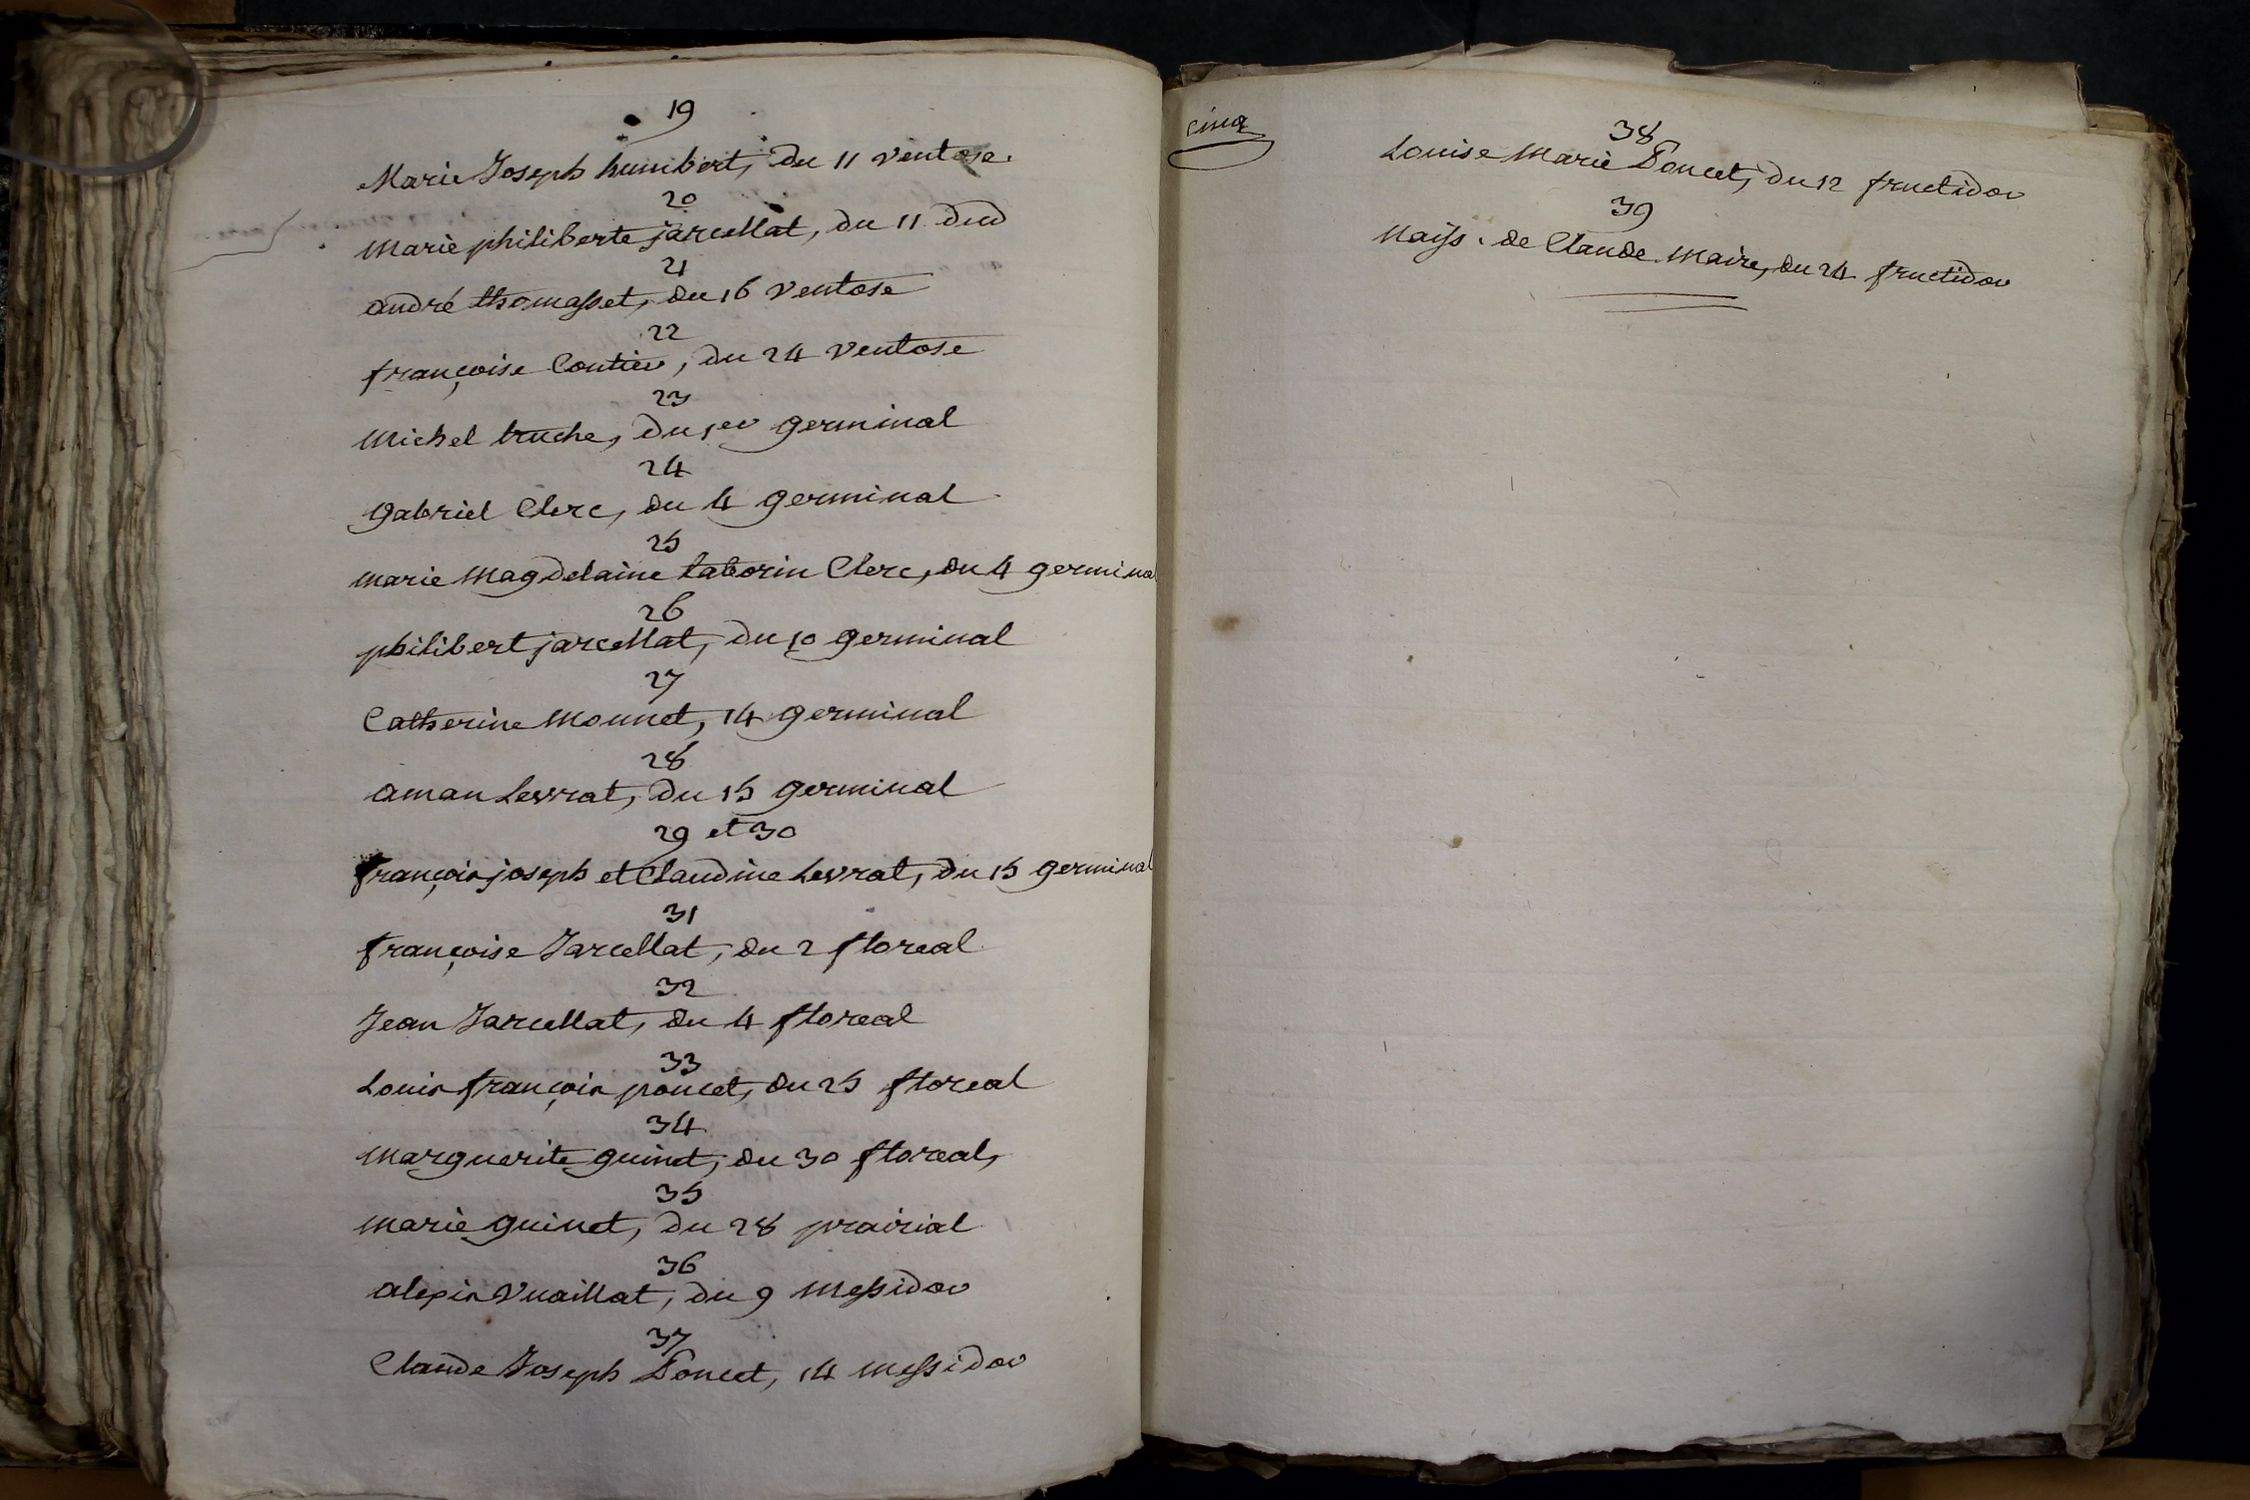 19
Marie Joseph humbert, du 11 ventose.
20
marie philiberte jarcellat, du 11 dud
21
andré thomasset, du 16 ventose
22
françoise Coutier, du 24 ventose
23
Michel truche, du 1er germinal
24
gabriel Clerc, du 4 germinal
25
marie magdelaine taborin Clerc, du 4 germinal
26
philibert jarcellat, du 10 germinal
27
Catherine Monnet, 14 germinal
28
aman Levrat, du 15 germinal
29 et 30
françois joseph et Claudine Levrat, du 15 germinal
31
françoise Jarcellat, du 2 floreal
32
Jean Jarcellat, du 4 floreal
33
Louis françois poncet, du 25 floreal
34
marguerite guinet, du 30 floreal,
35
marie guinet, du 28 prairial
36
alexis Vuaillat, du 9 messidor
37
Claude Joseph Poncet, 14 messidor
cinq
38
Louise Marie Poncet, du 12 fructidor
39
Naiss. de Claude Maire, du 24 fructidor